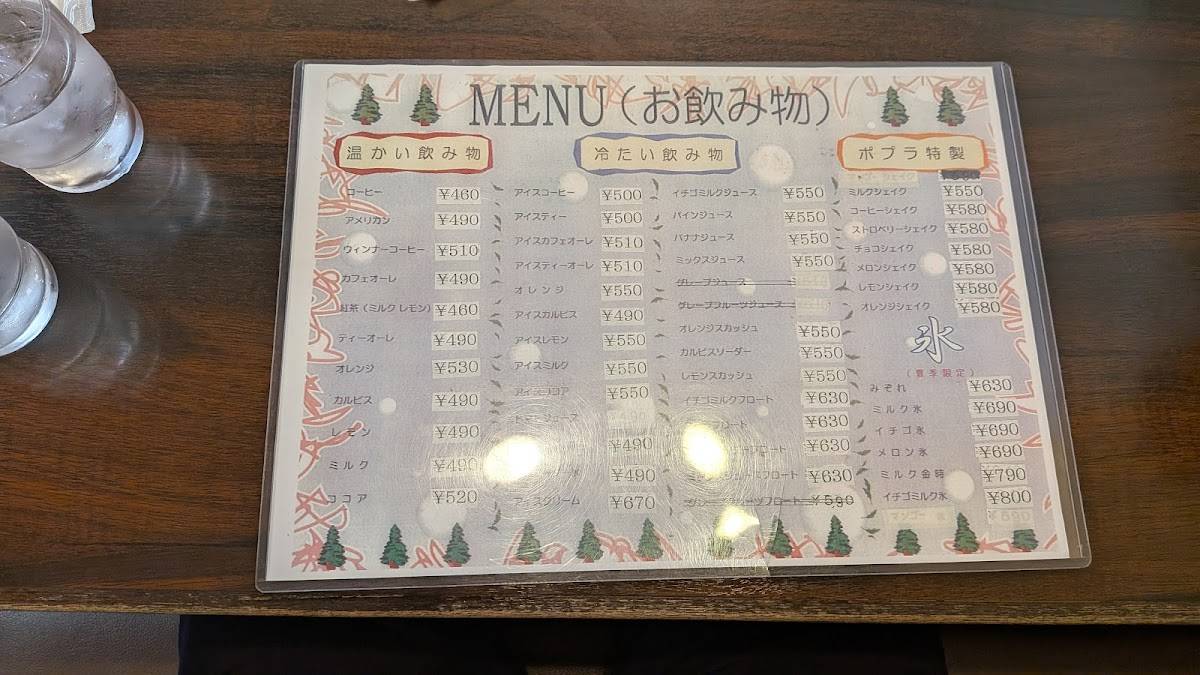 MENU(お飲み物)
温かい飲み物
コーヒー ¥460
アメリカン ¥490
ウィンナーコーヒー ¥510
カフェオーレ ¥490
紅茶(ミルク レモン) ¥460
ティーオーレ ¥490
オレンジ ¥530
カルピス ¥490
レモン ¥490
ミルク ¥490
ココア ¥520
冷たい飲み物
アイスコーヒー ¥500
アイスティー ¥500
アイスカフェオーレ ¥510
アイスティーオーレ ¥510
オレンジ ¥550
アイスカルピス ¥490
アイスレモン ¥550
アイスミルク ¥550
アイスココア ¥550
¥490
¥490
アイスクリーム ¥670
イチゴミルクジュース ¥550
パインジュース ¥550
バナナジュース ¥550
ミックスジュース ¥550
グレープジュース
グレープフルーツジュース
オレンジスカッシュ ¥550
カルピスソーダー ¥550
レモンスカッシュ ¥550
イチゴミルクフロート ¥630
フロート ¥630
フロート ¥630
フロート ¥630
フロート ¥590
ポプラ特製
ミルクシェイク ¥550
コーヒーシェイク ¥580
ストロベリーシェイク ¥580
チョコシェイク ¥580
メロンシェイク ¥580
レモンシェイク ¥580
オレンジシェイク ¥580
氷
(夏季限定)
みぞれ ¥630
ミルク氷 ¥690
イチゴ氷 ¥690
メロン氷 ¥690
ミルク金時 ¥790
イチゴミルク氷 ¥800